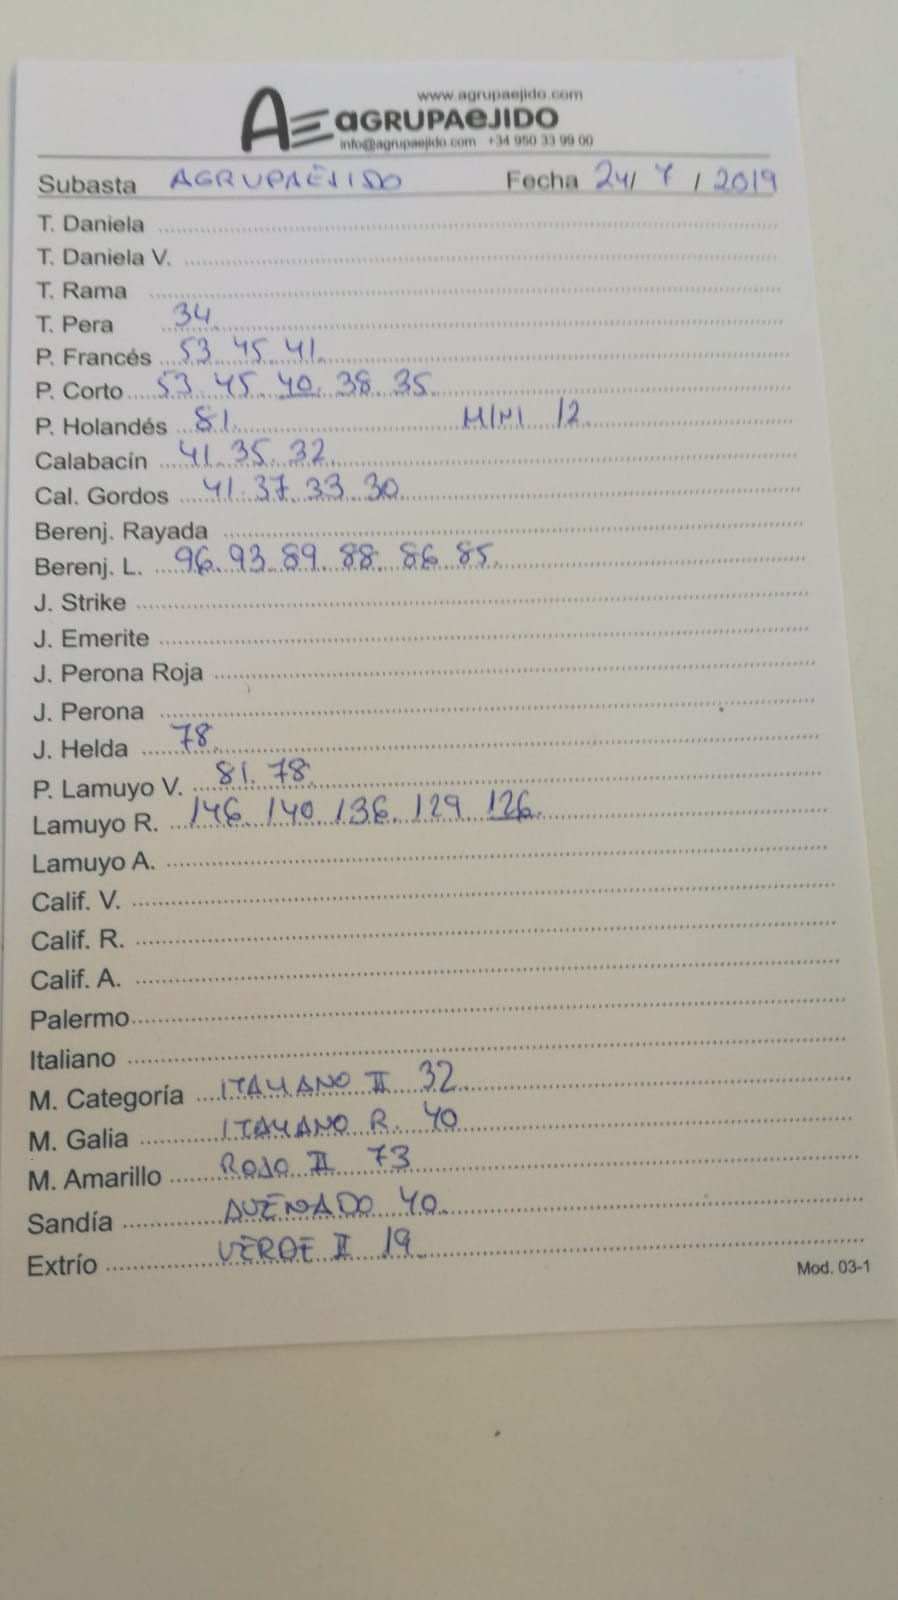 www.agrupaejido.com
AE aGRUPAeJIDO
info@agrupaejido.com +34 950 33 99 00
Subasta AGRUPAEJIDO Fecha 24/ 7 / 2019
T. Daniela
T. Daniela V.
T. Rama
T. Pera 34
P. Francés 53 45 41
P. Corto 53 45 40 38 35
P. Holandés 81 MINI 12
Calabacín 41 35 32
Cal. Gordos 41 37 33 30
Berenj. Rayada
Berenj. L. 96 93 89 88 86 85
J. Strike
J. Emerite
J. Perona Roja
J. Perona
J. Helda 78
P. Lamuyo V. 81 78
Lamuyo R. 146 140 136 129 126
Lamuyo A.
Calif. V.
Calif. R.
Calif. A.
Palermo
Italiano
M. Categoría ITALIANO II 32
M. Galia ITALIANO R. 40
M. Amarillo ROJO II 73
Sandía AVENADO 40
Extrío VERDE II 19
Mod. 03-1